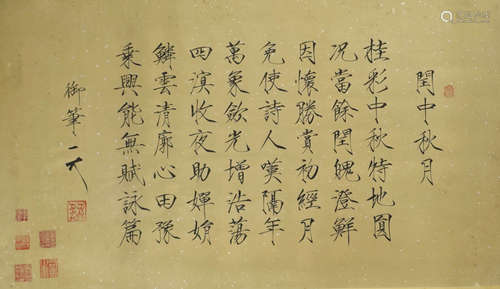 閏中秋月
桂彩中秋特地圓
況當餘閏魄澄鮮
因懷勝賞初經月
免使詩人嘆隔年
萬象斂光增浩蕩
四溟收夜助嬋娟
鱗雲清廓心田豫
乘興能無賦詠篇
御筆